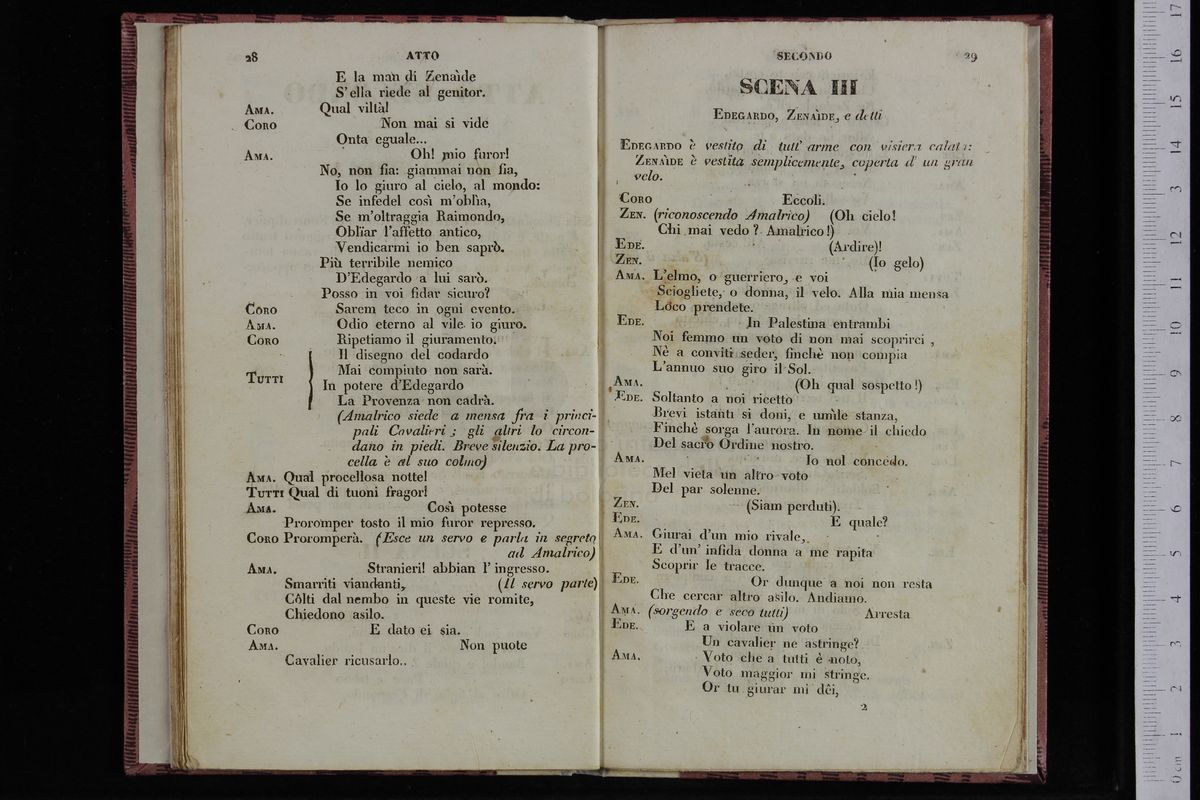 28 ATTO
E la man di Zenaìde
S'ella riede al genitor.
AMA. Qual viltà!
CORO Non mai si vide
Onta eguale...
AMA. Oh! mio furor!
No, non fia: giammai non fia,
Io lo giuro al cielo, al mondo:
Se infedel così m'oblìa,
Se m'oltraggia Raimondo,
Oblìar l'affetto antico,
Vendicarmi io ben saprò.
Più terribile nemico
D'Edegardo a lui sarò.
Posso in voi fidar sicuro?
CORO Sarem teco in ogni evento.
AMA. Odio eterno al vile io giuro.
CORO Ripetiamo il giuramento.
Il disegno del codardo
TUTTI Mai compiuto non sarà.
In potere d'Edegardo
La Provenza non cadrà.
(Amalrico siede a mensa fra i princi-
pali Cavalieri ; gli altri lo circon-
dano in piedi. Breve silenzio. La pro-
cella è al suo colmo)
AMA. Qual procellosa notte!
TUTTI Qual di tuoni fragor!
AMA. Così potesse
Proromper tosto il mio furor represso.
CORO Proromperà. (Esce un servo e parla in segreto
ad Amalrico)
AMA. Stranieri! abbian l'ingresso.
Smarriti viandanti, (Il servo parte)
Côlti dal nembo in queste vie romite,
Chiedono asilo.
CORO E dato ei sia.
AMA. Non puote
Cavalier ricusarlo..
SECONDO 29
SCENA III
EDEGARDO, ZENAÌDE, e detti
EDEGARDO è vestito di tutt' arme con visiera calata:
ZENAÌDE è vestita semplicemente, coperta d' un gran
velo.
CORO Eccoli.
ZEN. (riconoscendo Amalrico) (Oh cielo!
Chi mai vedo? Amalrico!)
EDE. (Ardire)!
ZEN. (Io gelo)
AMA. L'elmo, o guerriero, e voi
Sciogliete, o donna, il velo. Alla mia mensa
Loco prendete.
EDE. In Palestina entrambi
Noi femmo un voto di non mai scoprirci ,
Nè a conviti seder, finchè non compia
L'annuo suo giro il Sol.
AMA. (Oh qual sospetto!)
EDE. Soltanto a noi ricetto
Brevi istanti si doni, e umìle stanza,
Finchè sorga l'aurora. In nome il chiedo
Del sacro Ordine nostro.
AMA. Io nol concedo.
Mel vieta un altro voto
Del par solenne.
ZEN. (Siam perduti).
EDE. E quale?
AMA. Giurai d'un mio rivale,
E d'un' infida donna a me rapita
Scoprir le tracce.
EDE. Or dunque a noi non resta
Che cercar altro asilo. Andiamo.
AMA. (sorgendo e seco tutti) Arresta
EDE. E a violare un voto
Un cavalier ne astringe?
AMA. Voto che a tutti è noto,
Voto maggior mi stringe.
Or tu giurar mi dêi,
2
0 cm 1 2 3 4 5 6 7 8 9 10 11 12 13 14 15 16 17